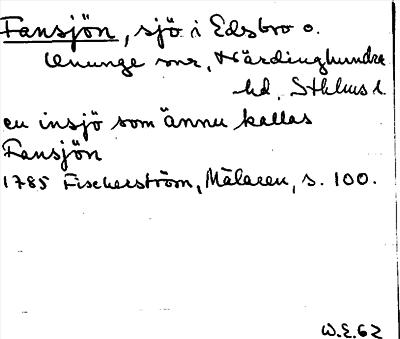 Fansjön, sjö i Edsbro o.
Ununge snr, Närdinghundra
hd, Sthlms l.
en insjö som ännu kallas
Fansjön
1785 Fischerström, Mälaren, s. 100.
W.E.62